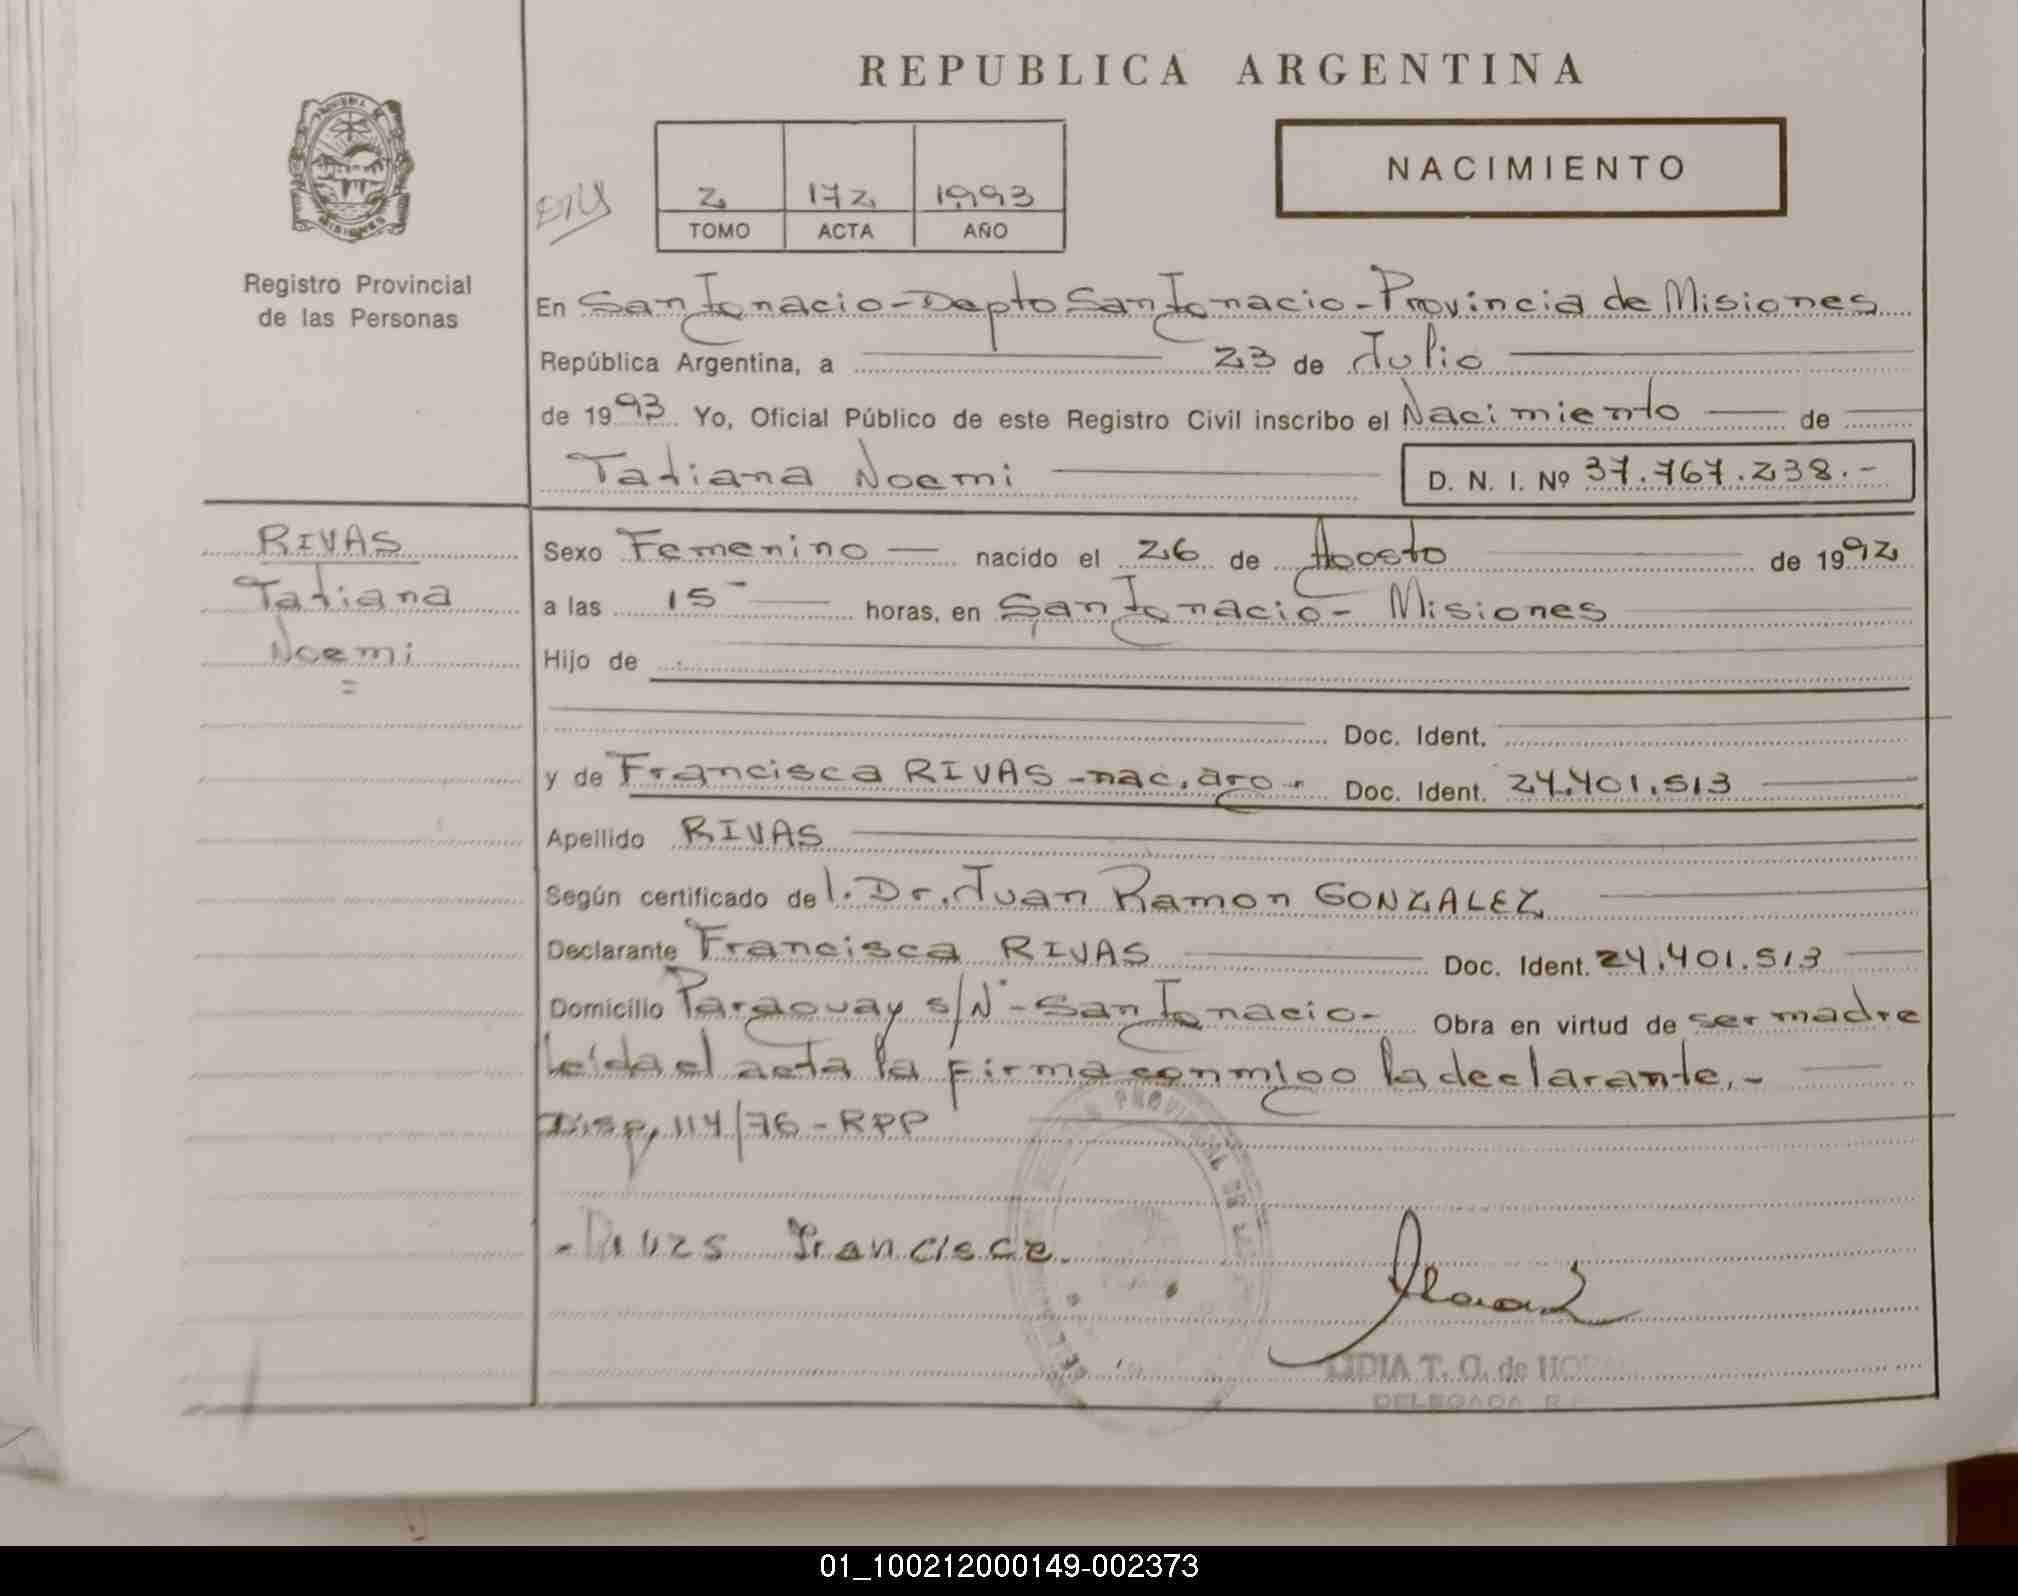 REPUBLICA ARGENTINA
NACIMIENTO
2 172 1993
TOMO ACTA AÑO
MISIONES
Registro Provincial
de las Personas
En San Ignacio - Depto San Ignacio - Provincia de Misiones
República Argentina, a 23 de Julio
de 1993 Yo, Oficial Público de este Registro Civil inscribo el Nacimiento de
Tatiana Noemi D. N. I. Nº 37.767.238.-
RIVAS
Tatiana
Noemi
=
Sexo Femenino nacido el 26 de Agosto de 1992
a las 15 horas, en San Ignacio - Misiones
Hijo de
Doc. Ident.
y de Francisca RIVAS - nac. arg. Doc. Ident. 24.401.513
Apellido RIVAS
Según certificado del. Dr. Juan Ramon GONZALEZ
Declarante Francisca RIVAS Doc. Ident. 24.401.513
Domicilio Paraguay s/Nº - San Ignacio - Obra en virtud de ser madre
Leida el acta la firma conmigo la declarante.-
Disp. 114/76 - RPP
Francisce.
PROVINCIAL DE
LIDIA T. G. de
DELEGADA
01_100212000149-002373